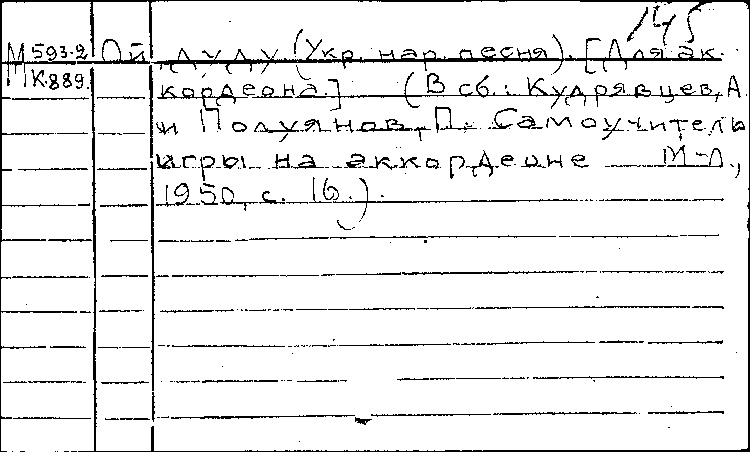 145
М 593-2 Ой, дуду (Укр. нар. песня). [Для ак-
К889. кордеона.] (В сб.: Кудрявцев, А.
и Полуянов, П. Самоучитель
игры на аккордеоне М-Л.,
1950, с. 16.).